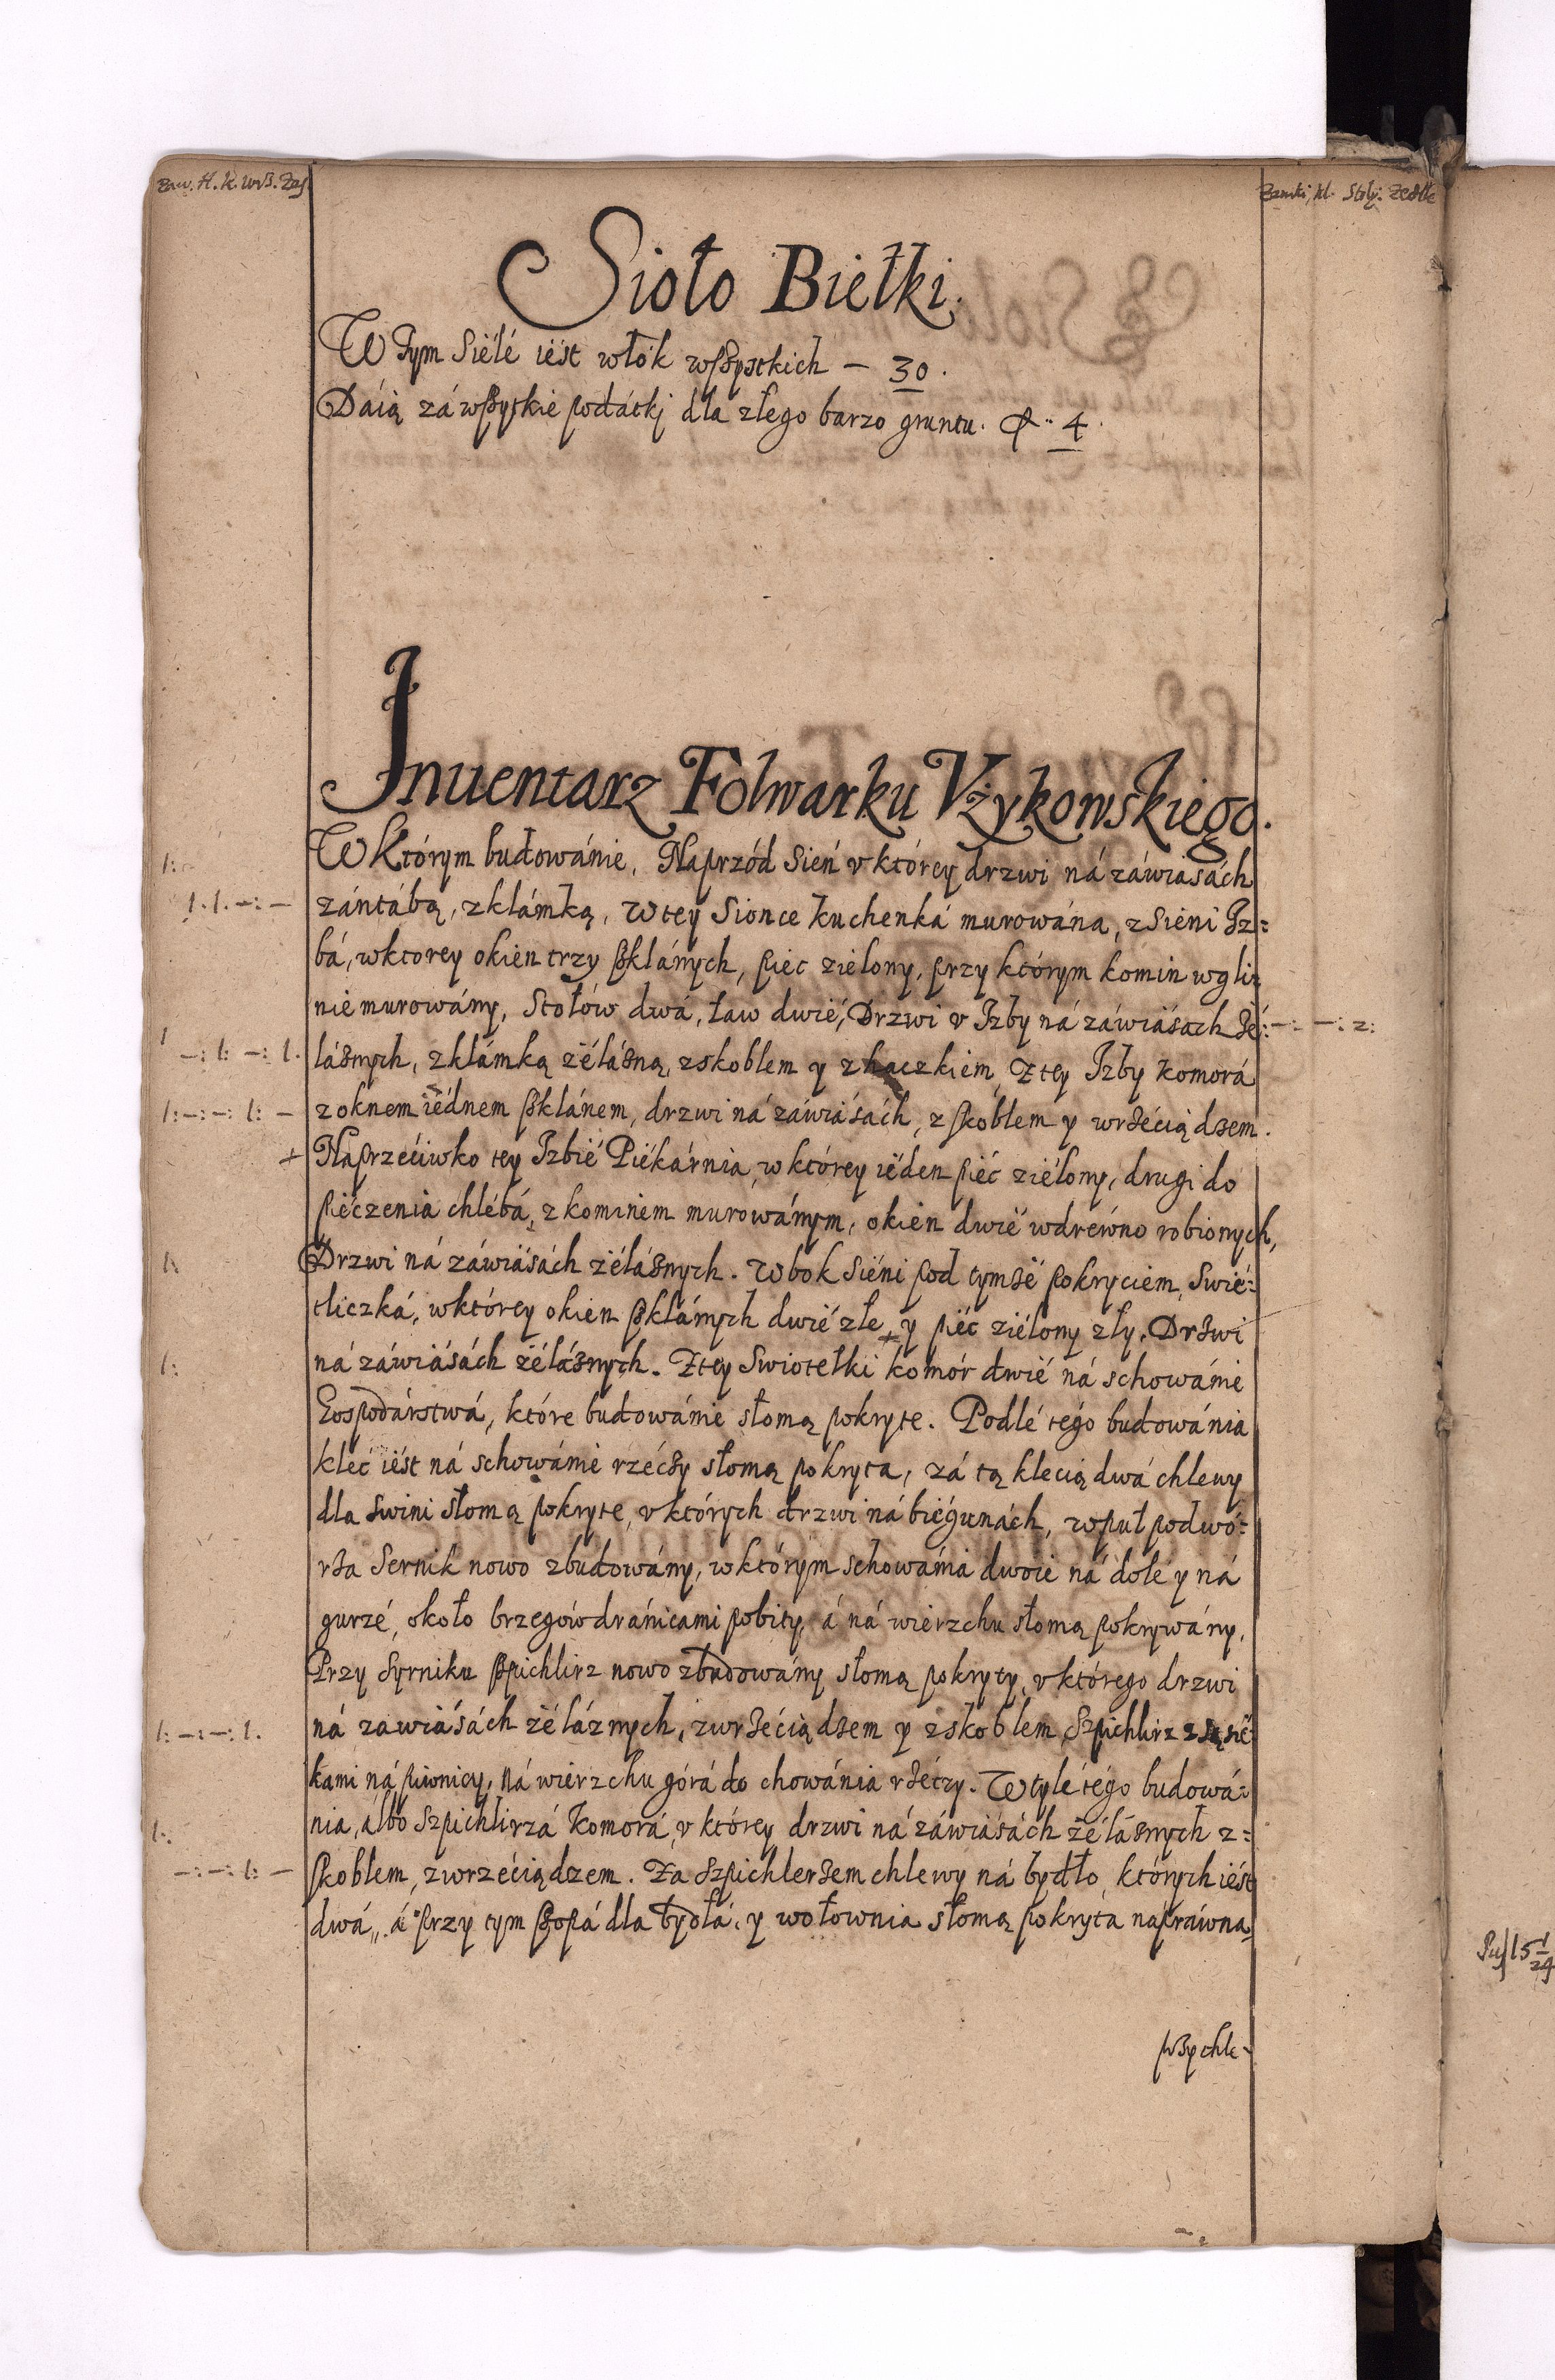 Zaw. H. k. wrß. Zas.
Sioło Biełki.
W Tym Siële iëst włók wßystkich — 30.
Dáią zá wßytkie podátkj dla złego barzo gruntu. fl. 4.
Jnuentarz Folwarku Vżykowskiego.
W Którym budowánie. Naprzód Sień v którey drzwi ná záwiasách
zántábą, z klámką, w tey Sionce kuchenká murowána, z Sieni Jz=
bá, w ktorey okien trzy ßklánych, piec zielony, przy którym komin w gli=
nie murowány, Stołów dwá, ław dwié, Drzwi v Jzby ná záwiásach żé=
láznych, z klámką żëlázną, z skoblem y z haczkiem, Z tey Jzby komorá
z oknem iëdnem ßklánem, drzwi ná záwiásách, z skoblem y wrzéciądzem.
+ Naprzéćiwko tey Jzbië Piëkárnia, w którey iëden piéc ziélony, drugi do
piéczenia chlébá, z kominem murowánym, okien dwië w drewno robionych,
Drzwi ná záwiásách żëláznych. W bok Siëni pod tymżë pokryciem, Swié=
tliczká, w którey okien ßklánych dwië złe, y piéc ziélony zły. Drzwi
ná záwiásách żëláznych. Z tey Swiotełki komór dwië ná schowánie
Gospodárstwá, które budowánie słomą pokryte. Podlé tégo budowánia
kléć iëst ná schowánie rzéczy słomą pokryta, zá tą klecią dwá chlewy
dla swini słomą pokryte, v których drzwi ná biégunách, w puł podwó=
rza Sernik nowo zbudowány, w którym schowánia dwoie ná dole y ná
gurzé, około brzegów dránicami pobity, á ná wierzchu słomą pokrywány.
Przy Syrniku ßpichlirz nowo zbudowány słomą pokryty, v którego drzwi
ná zawiásách żéláznych, z wrzéciądzem y z skoblem, Szpichlirz z sąsië=
kami ná piwnicy, ná wierzchu górá do chowánia rzéczy. W tylé tégo budowá=
nia, álbo Szpichlirzá komorá, v którey drzwi ná záwiásách żéláznych z=
skoblem, z wrzéciądzem. Za Szpichlerzem chlewy ná bydło, których iést
dwá, á przy tym ßopá dla bydłá, y wołownia słomą pokryta naprawna,